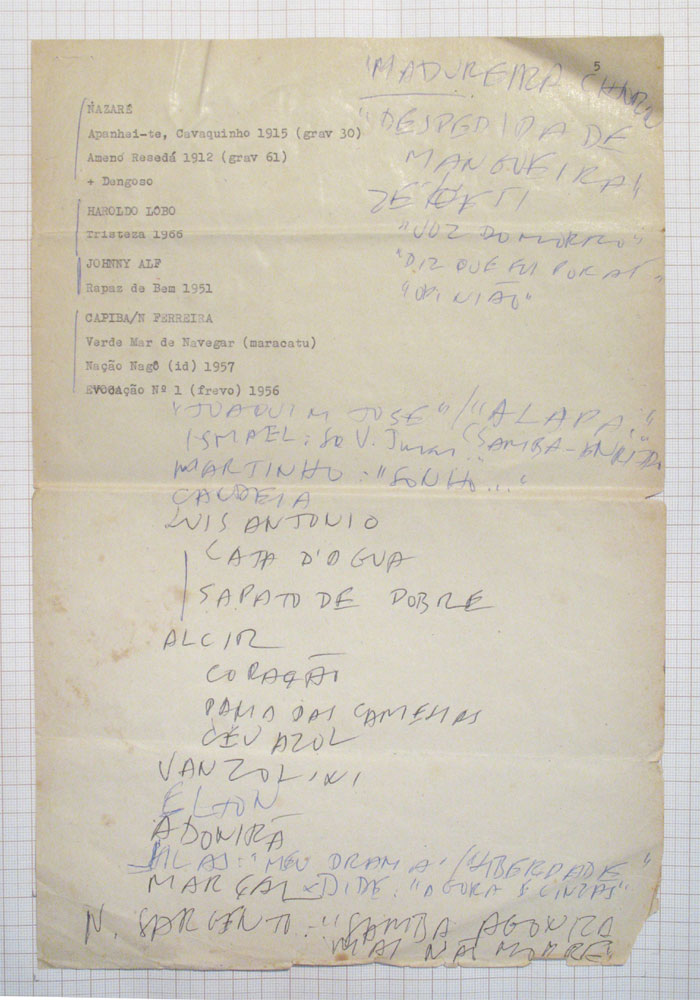 5
"MADUREIRA CHOROU
"DESPEDIDA DE
MANGUEIRA"
NAZARÉ
Apanhei-te, Cavaquinho 1915 (grav 30)
Ameno Resedá 1912 (grav 61)
+ Dengoso
ZE KETI
"VOZ DO MORRO"
"DIZ QUE FUI POR AÍ"
"OPINIÃO"
HAROLDO LÔBO
Tristeza 1966
JOHNNY ALF
Rapaz de Bem 1951
CAPIBA/N FERREIRA
Verde Mar de Navegar (maracatu)
Nação Nagô (id) 1957
Evocação Nº 1 (frevo) 1956
"JOAQUIM JOSÉ"/"A LAPA"
ISMAEL: Se V. Jurar (SAMBA-ENREDO)
MARTINHO: "SONHO..."
CANDEIA
LUIS ANTONIO
LATA D'OGUA
SAPATO DE POBRE
ALCIR
CORAÇÃO
DAMA DAS CAMELIAS
CÉU AZUL
VANZOLINI
ELTON
ADONIRÃ
SILAS: "MEU DRAMA"/"LIBERDADE"
MARÇAL DIDE: "AGORA É CINZAS"
N. SARGENTO: "SAMBA AGONIZA
MAS NÃO MORRE"